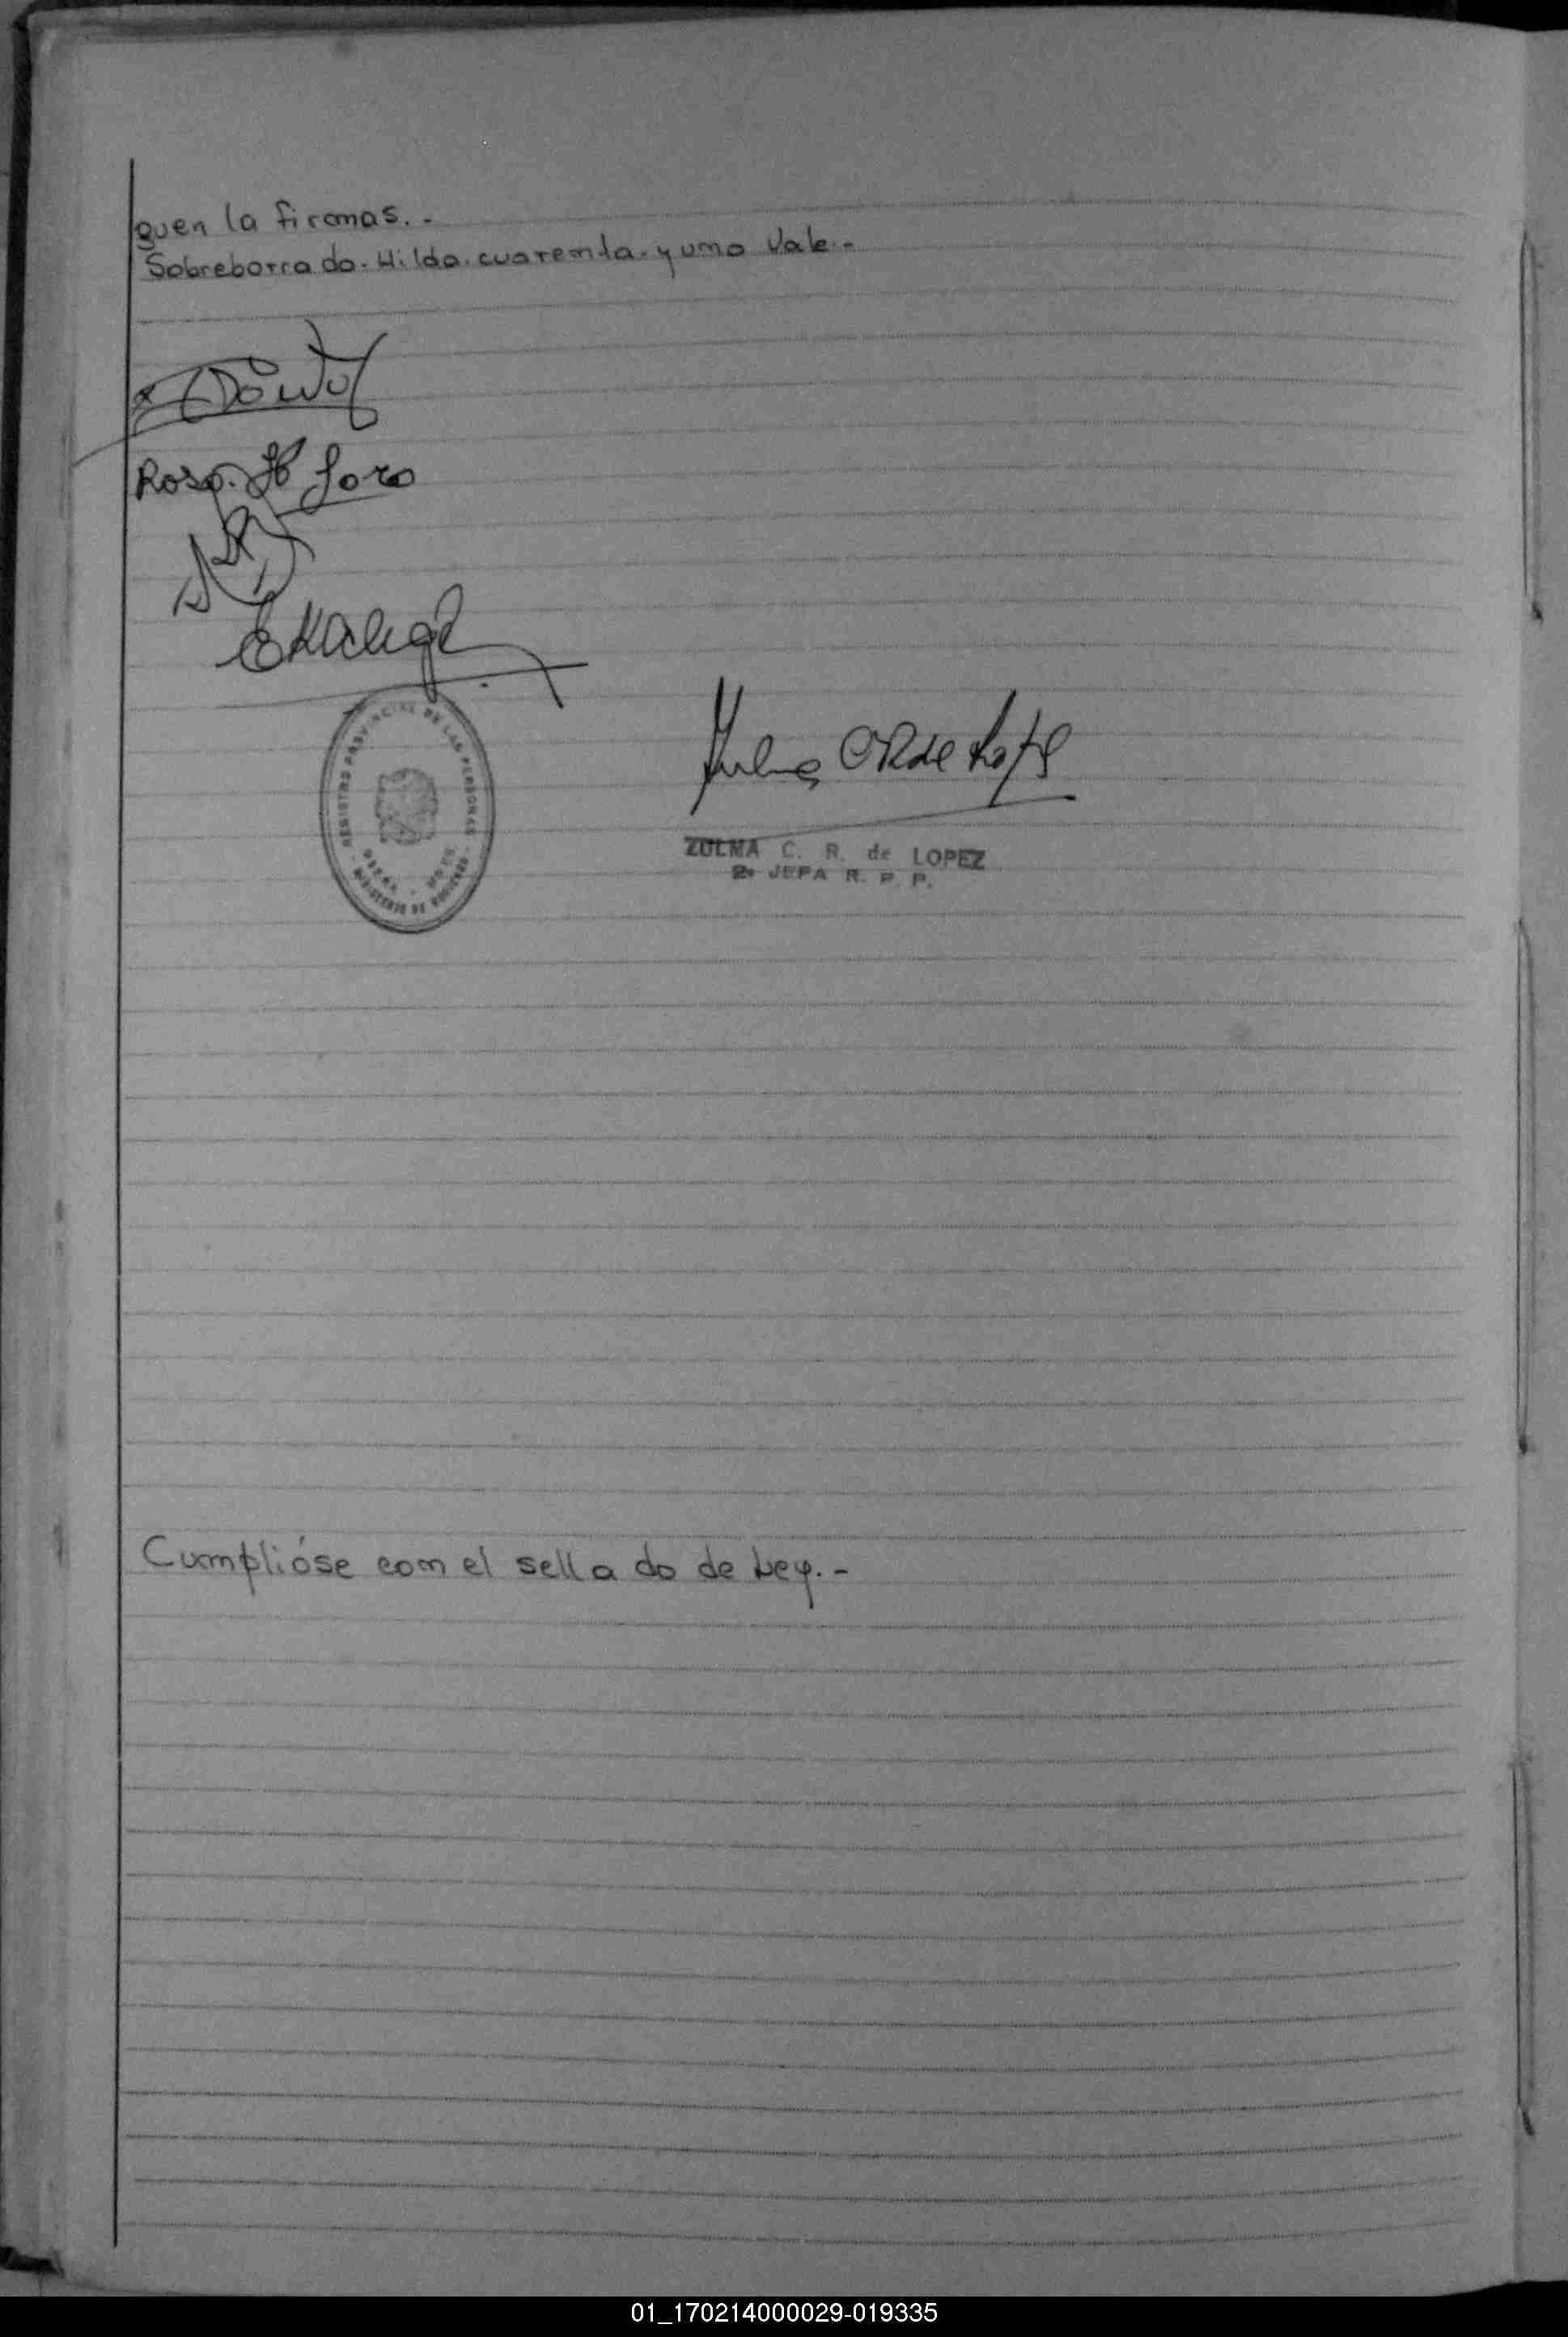 guen la firmas.-
Sobreborrado. Hilda. cuarenta. y uno Vale.-
Rosa. H Loro
REGISTRO PROVINCIAL DE LAS PERSONAS
ZULMA C. R. de LOPEZ
2ª JEFA R. P. P.
Cumplióse con el sellado de Ley.-
01_170214000029-019335